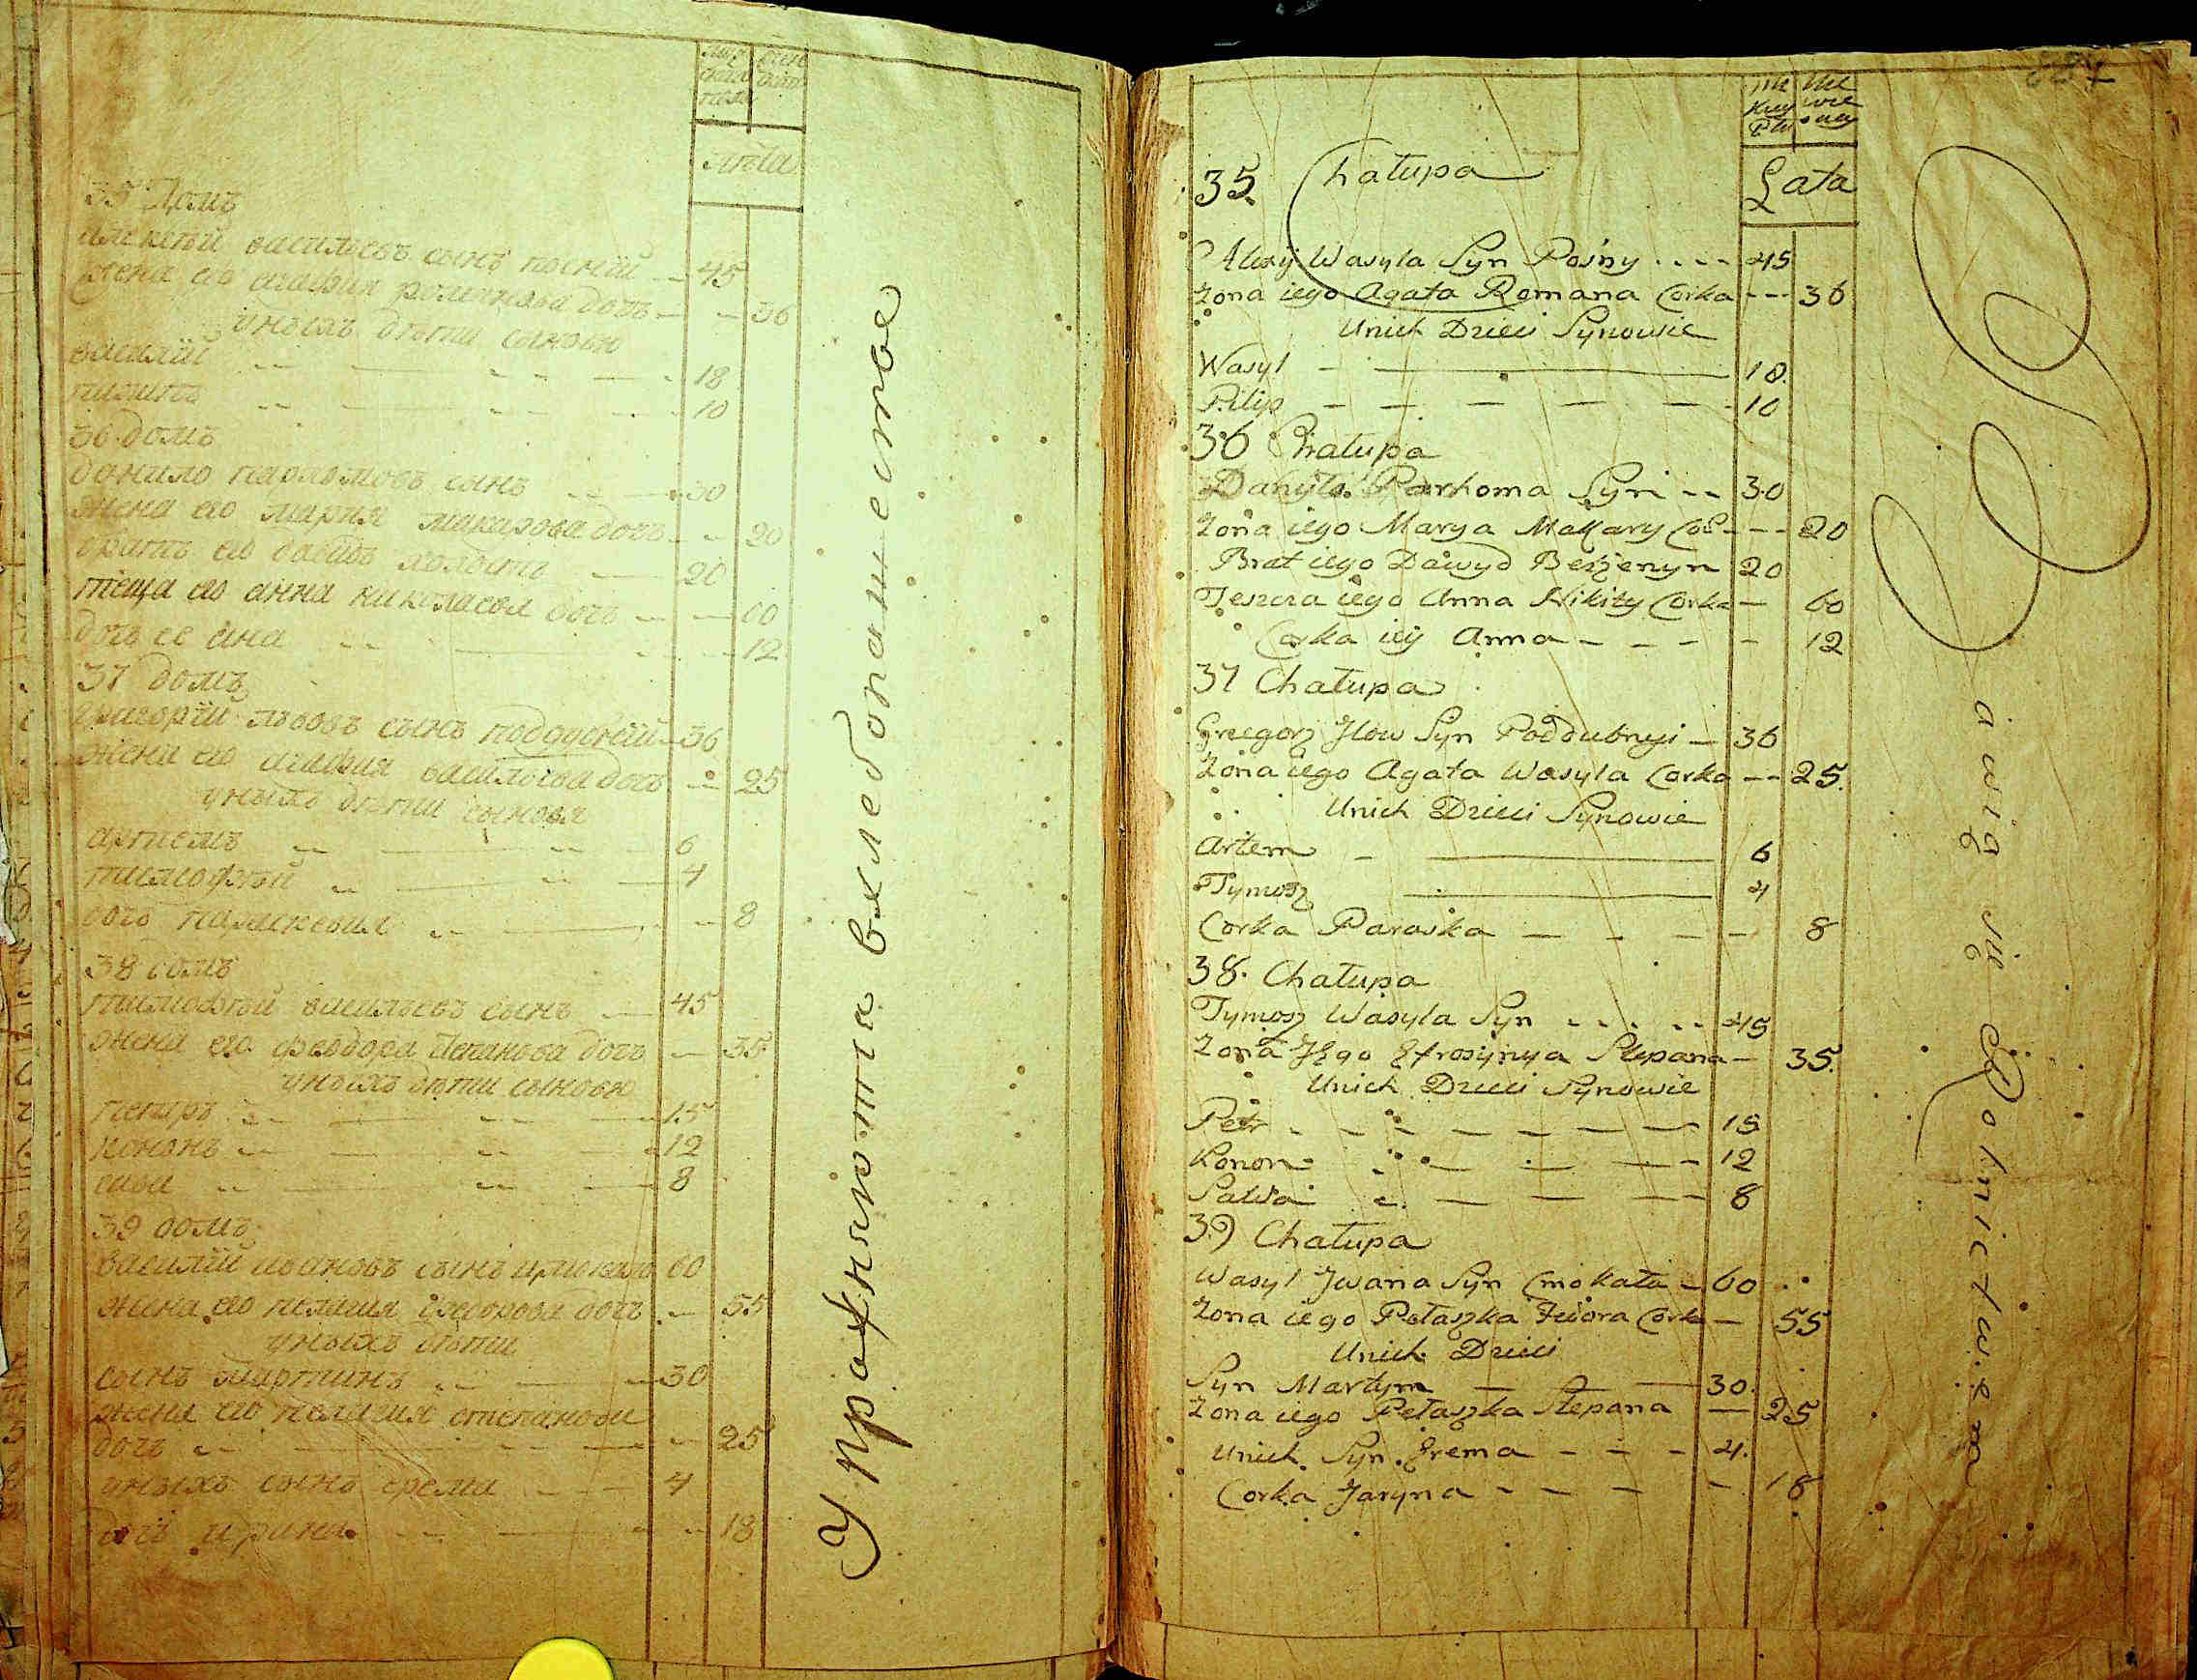 лѣта
35 Домъ
алексѣй васильевъ сынъ посный 45
жена его агафия романова дочь 36
у нихъ дѣти сыновя
василий 18
пилипъ 10
36 домъ
данило пархомовъ сынъ 30
жена его мария макарова дочь 20
братъ его давидъ холостъ 20
теща его анна дочь 60
дочь ее анна 12
37 домъ
григорий львовъ сынъ поддубний 36
жена его агафия васильева дочь 25
у нихъ дѣти сыновя
артемъ 6
тимофѣй 4
дочь параскевия 8
38 домъ
тимофѣй васильевъ сынъ 45
жена его феодора степанова дочь 35
у нихъ дѣти сыновя
петръ 15
кононъ 12
сава 8
39 домъ
василий ивановъ сынъ 60
жена его пелагия феодорова дочь 55
у нихъ дѣти
сынъ мартинъ 30
жена его пелагия степанова
дочь 25
у нихъ сынъ ерема 4
дочь ирина 18
Упражняются в хлебопашестве
Lata
35. Chałupa
Alexy Wasyla Syn Posny 45
Zona iego Agata Romana Corka 36
Unich Dzieci Synowie
Wasyl 18
Pilip 10
36 Chałupa
Danyło Parhoma Syn 30
Zona iego Marya Makary Cor 20
Brat iego Dawyd Bezżenyn 20
Teszcza iego Anna Nikity Corka 60
Corka iey Anna 12
37 Chałupa
Gregorz Jlow Syn Poddubnyi 36
Zona iego Agata Wasyla Corka 25
Unich Dzieci Synowie
Artem 6
Tymosz 4
Corka Paraska 8
38. Chałupa
Tymosz Wasyla Syn 45
Zona Jego Efrosynya Stepana 35
Unich Dzieci Synowie
Petr 15
Konon 12
Sawa 8
39 Chałupa
Wasyl Jwana Syn Cmokała 60
Zona iego Pełaszka Fedora Corka 55
Unich Dzieci
Syn Martym 30
Zona iego Pełaszka Stepana 25
Unich Syn Jrema 4
Corka Jaryna 18
bawią się Rolnictwem